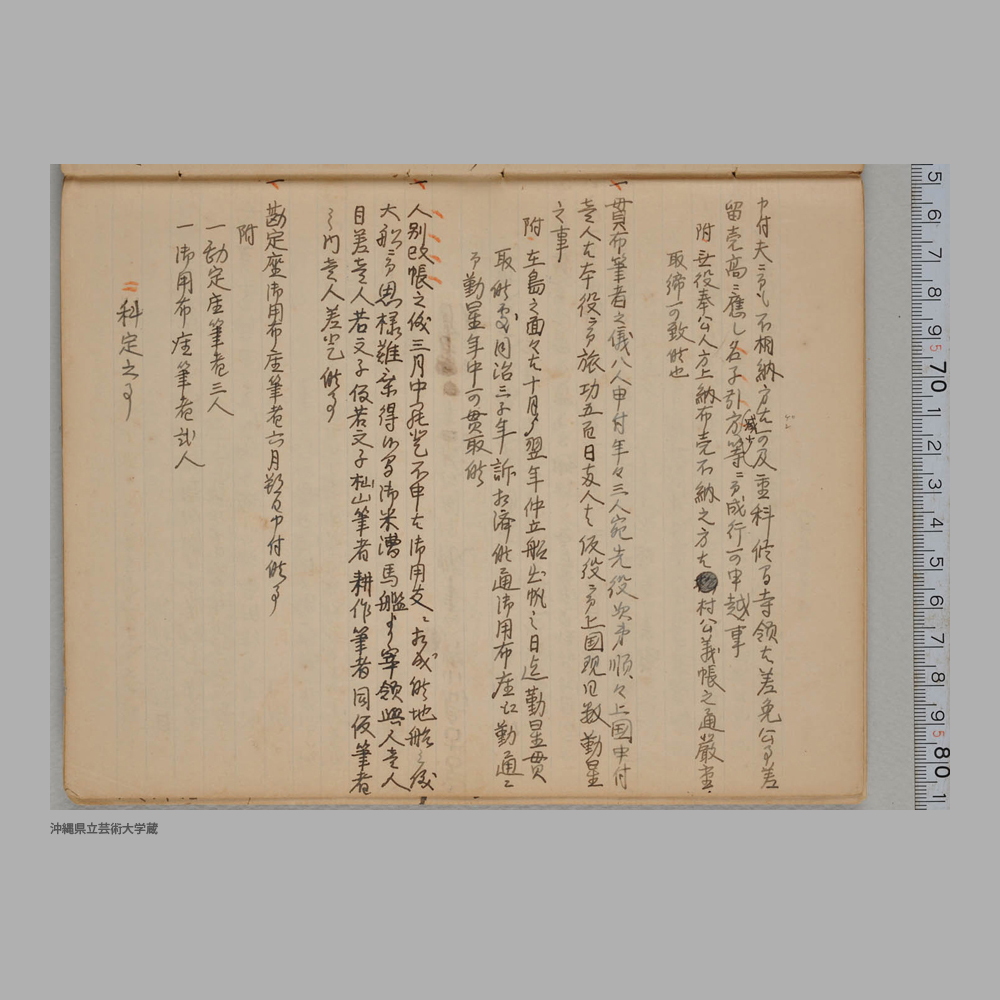 申付夫ニ而も不相納方は可及重科候間寺領は差免公事差
留売高ニ應し名子引方減少等ニ而成行可申越事
附無役奉公人方上納布売不納之方は村公義帳之通厳重
取締可致候也
一貫布筆者之儀八人申付年々三人宛先役次第順々上国申付
壱人は本役ニ而旅功五百日友人は仮役ニ而上国現日数勤星
之事
附在島之面々は十月より翌年仲立船出帆之日迄勤星貫
取候処同治三子年訴相済候通御用布座江勤通ニ
而勤星年中可貫取候
一人別改帳之儀三月中罷登不申は御用支ニ相成候地船之儀
大船ニ而思様難乗得候間御米漕馬艦より宰領與人壱人
目差壱人若文子仮若文子杣山筆者耕作筆者同仮筆者
之内壱人差登候事
一勘定座御用布座筆者六月朔日申付候事
附
一勘定座筆者三人
一御用布座筆者弐人
科定之事
5 6 7 8 9 70 1 2 3 4 5 6 7 8 9 80 1
沖縄県立芸術大学蔵